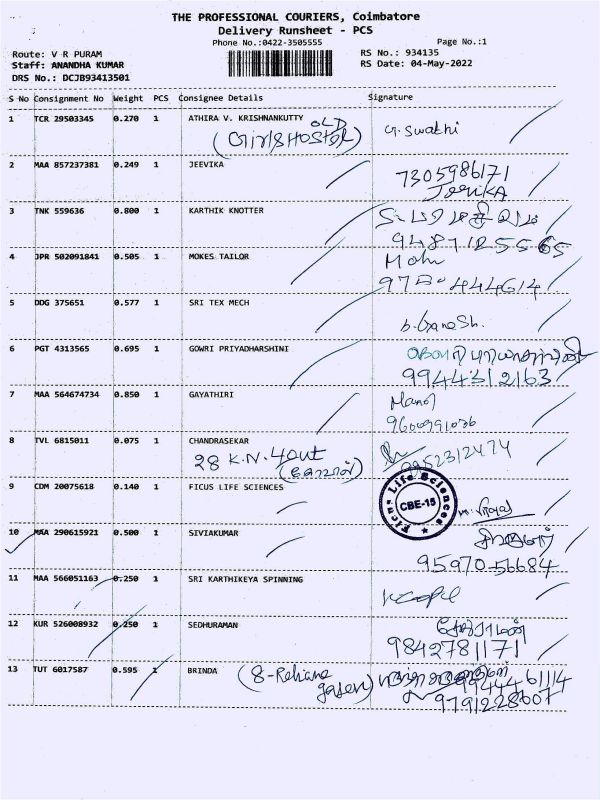 THE PROFESSIONAL COURIERS, Coimbatore
Delivery Runsheet - PCS
Phone No.:0422-3505555 Page No.:1
Route: V R PURAM RS No.: 934135
Staff: ANANDHA KUMAR RS Date: 04-May-2022
DRS No.: DCJB93413501
S No Consignment No Weight PCS Consignee Details Signature
1 TCR 29503345 0.270 1 ATHIRA V. KRISHNANKUTTY G. Swathi
OLD
(Girls Hostel)
2 MAA 857237381 0.249 1 JEEVIKA 7305986171
Jeevika
3 TNK 559636 0.800 1 KARTHIK KNOTTER
9487125565
4 JPR 502091841 0.505 1 MOKES TAILOR Mohn
9750444614
5 DDG 375651 0.577 1 SRI TEX MECH b. Ganesh.
6 PGT 4313565 0.695 1 GOWRI PRIYADHARSHINI
9944312163
7 MAA 564674734 0.850 1 GAYATHIRI Manoj
9600991036
8 TVL 6815011 0.075 1 CHANDRASEKAR
28 K.N. 40ut 9952312474
9 CDM 20075618 0.140 1 FICUS LIFE SCIENCES
Ficus Life Sciences
CBE-15
10 MAA 290615921 0.500 1 SIVIAKUMAR
9597056684
11 MAA 566051163 0.250 1 SRI KARTHIKEYA SPINNING
12 KUR 526008932 0.250 1 SEDHURAMAN சேதுராமன்
9842781171
13 TUT 6017587 0.595 1 BRINDA (8-Reliance
9444461114
9791228607